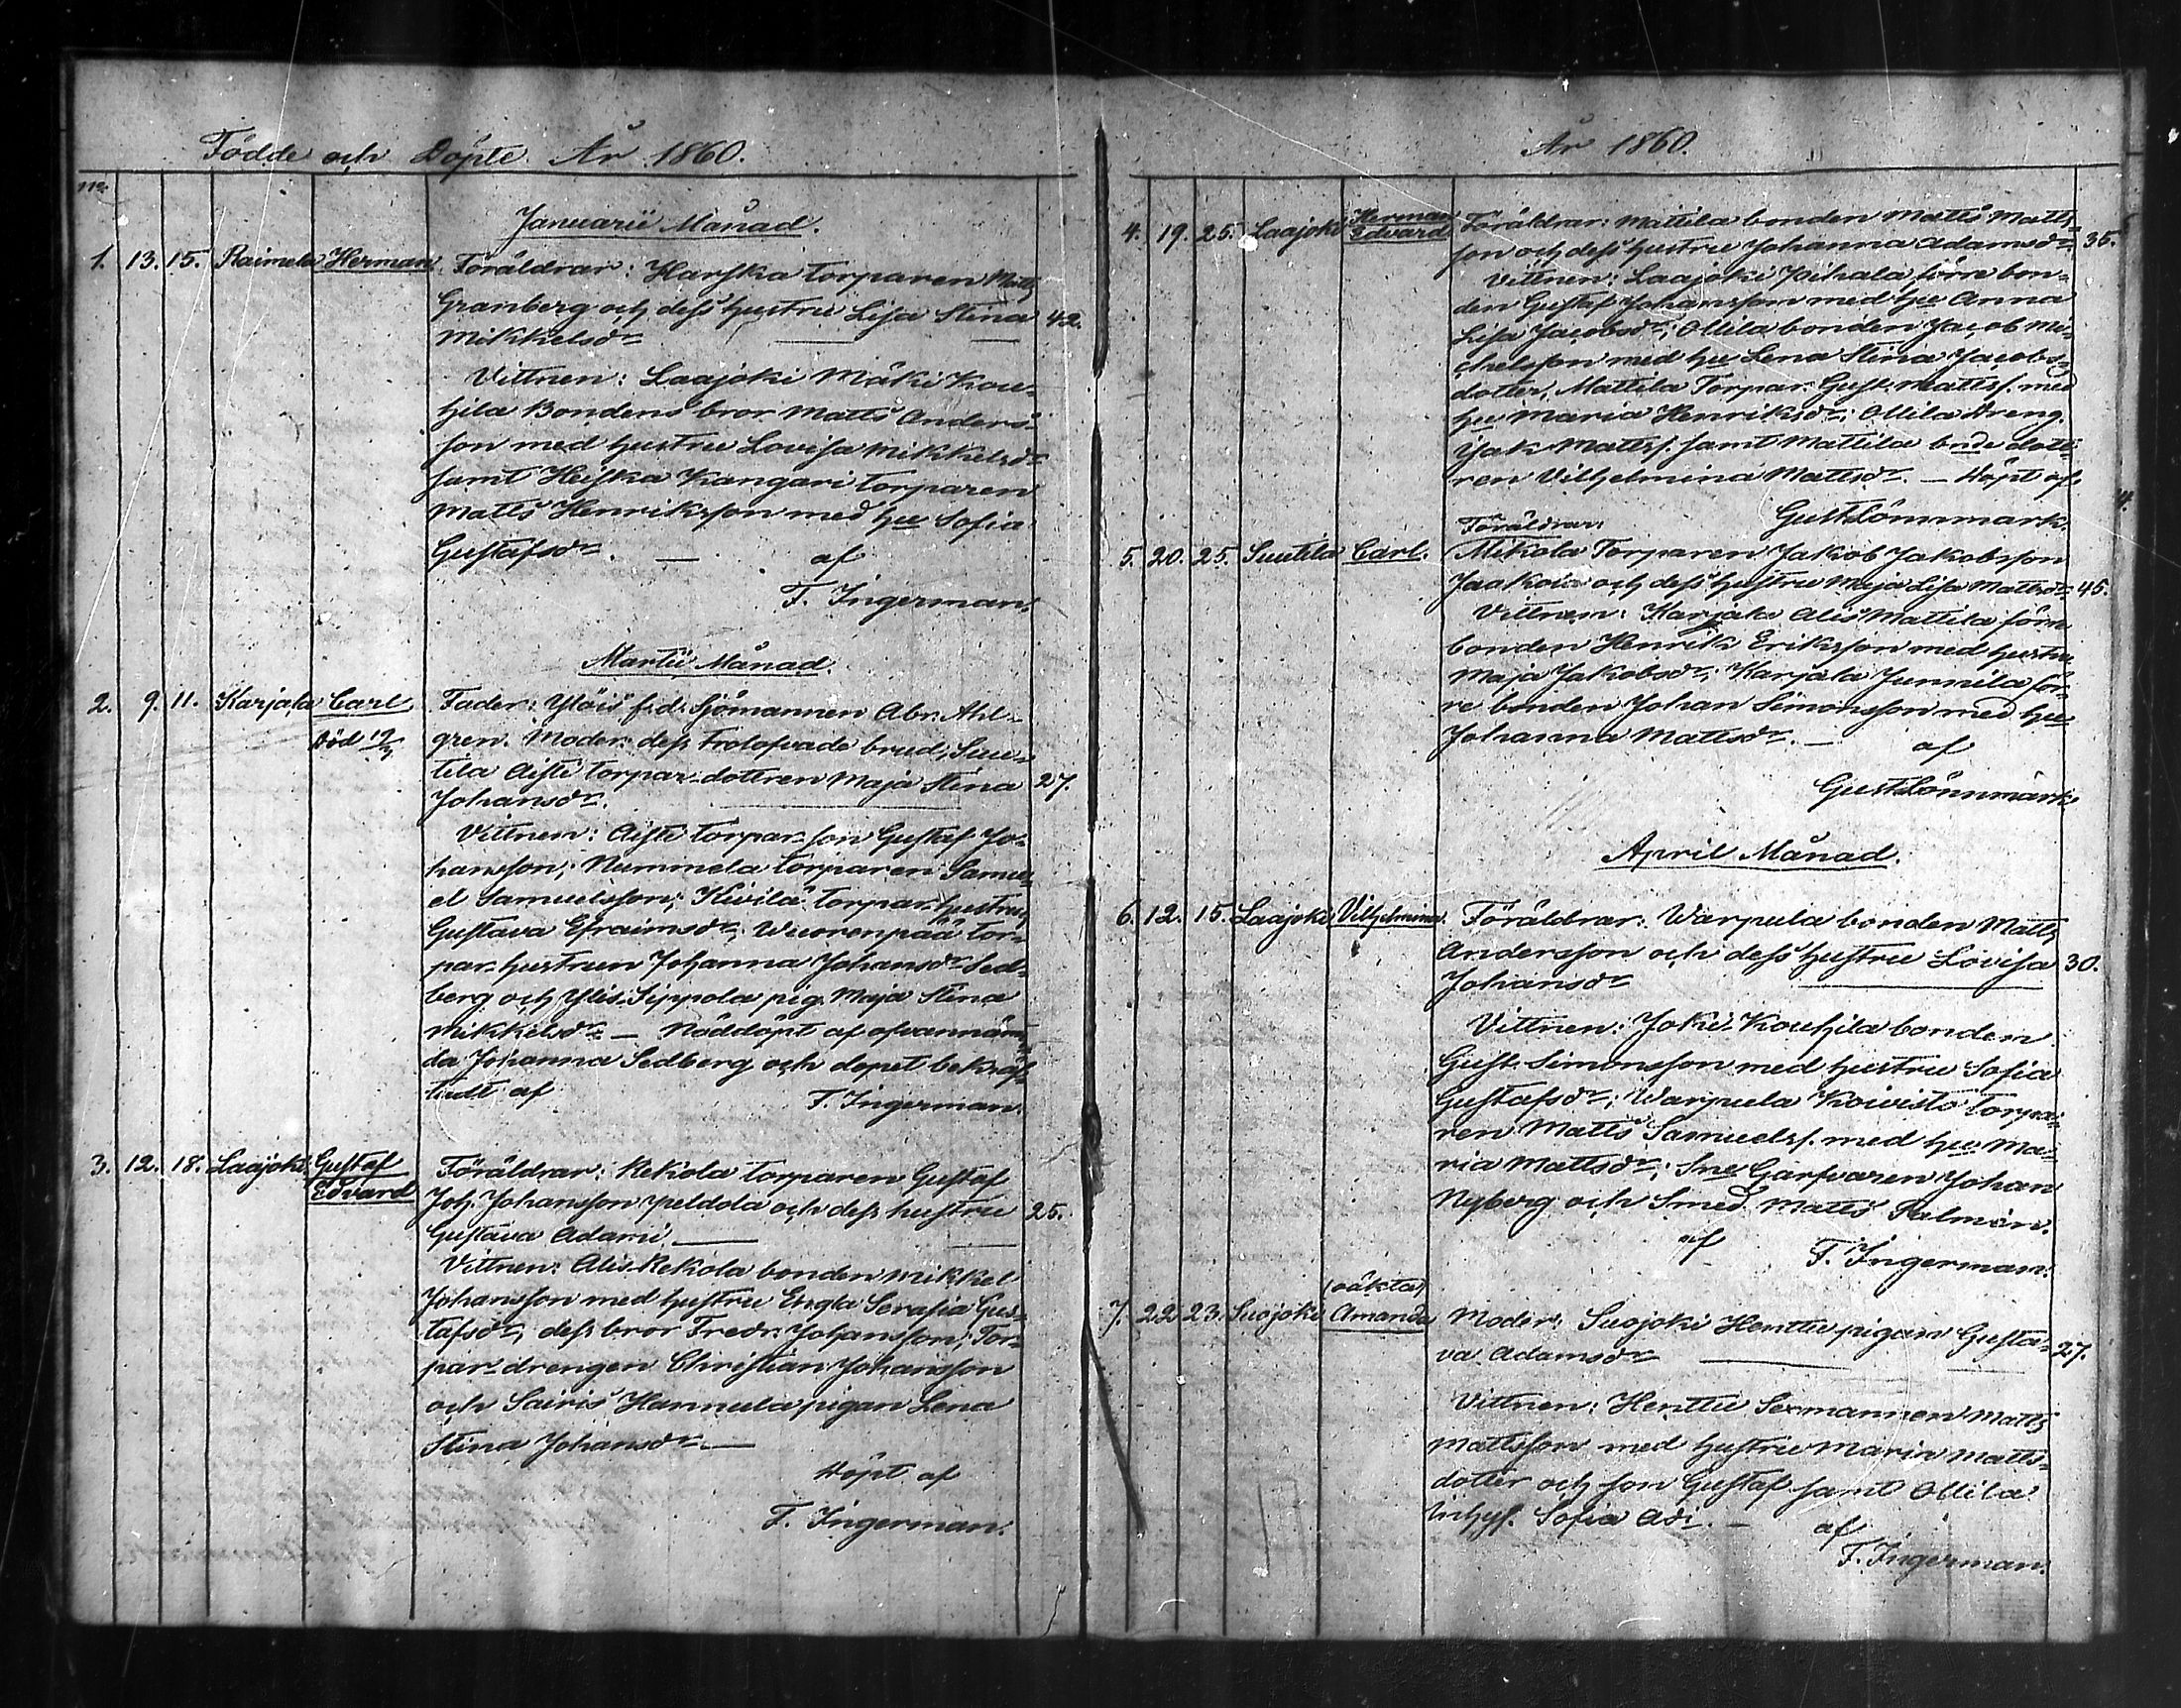 Födde och Döpte År 1860.
No
Januarii Månad.
1. 13. 15. Raimela Herman Föräldrar: Harska torparen Matts
Granberg och dess hustru Lisa Stina 42.
Mikkelsdr
Vittnen: Laajoki Mäki Kou-
hila Bondens bror Matts Anders-
son med hustru Lovisa Mikkelsdr
samt Heiska Kangari torparen
Matts Henriksson med hu Sofia
Gustafsdr. — af
F. Ingerman.
Martii Månad.
2. 9. 11. Karjala Carl Fader: Yläis f.d. Sjömannen Abr. Ahl-
Död 19/3 gren. Moder: dess trolofvade brud, Suu-
tila Aisti torpar-dottren Maja Stina 27.
Johansdr.
Vittnen: Aisti torpar-son Gustaf Jo-
hansson; Nummela torparen Samu-
el Samuelsson; Kivilä torpar-hustru
Gustava Efraimsdr; Wuorenpää tor-
par-hustrun Johanna Johansdr Sed-
berg och Ylis. Sippola pig. Maja Stina
Mikkelsdr — Nöddöpt af ofvannäm-
da Johanna Sedberg och dopet bekräf-
tadt af F. Ingerman.
3. 12. 18. Laajoki Gustaf Föräldrar: Rekola torparen Gustaf
Edvard Joh. Johansson Peldola och dess hustru 25.
Gustava Adami. —
Vittnen: Alis-Rekola bonden Mikkel
Johansson med hustru Engla Serafia Gus-
tafsdr; dess bror Fredr. Johansson; Tor-
par-drengen Christian Johansson
och Sairis Hannula pigan Lena
Stina Johansdr. —
Döpt af
F. Ingerman.
År 1860.
4. 19. 25. Laajoki Herman Edvard Föräldrar: Mattila bonden Matts Matts-
son och dess hustru Johanna Adamsdr 35.
Vittnen: Laajoki Pihala förre bon-
den Gustaf Johansson med hu Anna
Lisa Jacobsdr; Ollila bonden Jacob Mi-
chelsson med hu Lena Stina Jacobs-
dotter, Mattila Torpar. Gust. Mattss. med
hu Maria Henriksdr; Ollila dreng.
Isak Mattss. samt Mattila bnde dott-
ren Vilhelmina Mattsdr. — Döpt af
Gust. Lönnmark.
Föräldrar:
5. 20. 25. Suutila Carl. Mikola Torparen Jakob Jakobsson
Jaakoia och dess hustru Maja Lisa Mattsdr 45.
Vittnen: Karjala Alis Mattila förre
bonden Henrik Eriksson med hustru
Maja Jakobsdr; Karjala Junnila för-
re bonden Johan Simonsson med hu
Johanna Mattsdr. — af
Gust. Lönnmark
April Månad.
6. 12. 15. Laajoki Vilhelmina. Föräldrar: Warpula bonden Matts
Andersson och dess hustru Lovisa 30.
Johansdr
Vittnen: Joki Kouhila bonden
Gust. Simonsson med hustru Sofia
Gustafsdr; Warpula Koivisto torpa-
ren Matts Samuelss. med hu Ma-
ria Mattsdr; Sne Garfvaren Johan
Nyberg och Smed Matts Palmén.
af F. Ingerman.
(oäkta)
7. 22. 23. Suojoki Amanda Moder: Suojoki Henttu pigan Gusta-
va Adamsdr 27.
Vittnen: Henttu Sexmannen Matts
Mattsson med hustru Maria Matts-
dotter och son Gustaf samt Ollila
Inhys. Sofia Adr. — af
F. Ingerman.